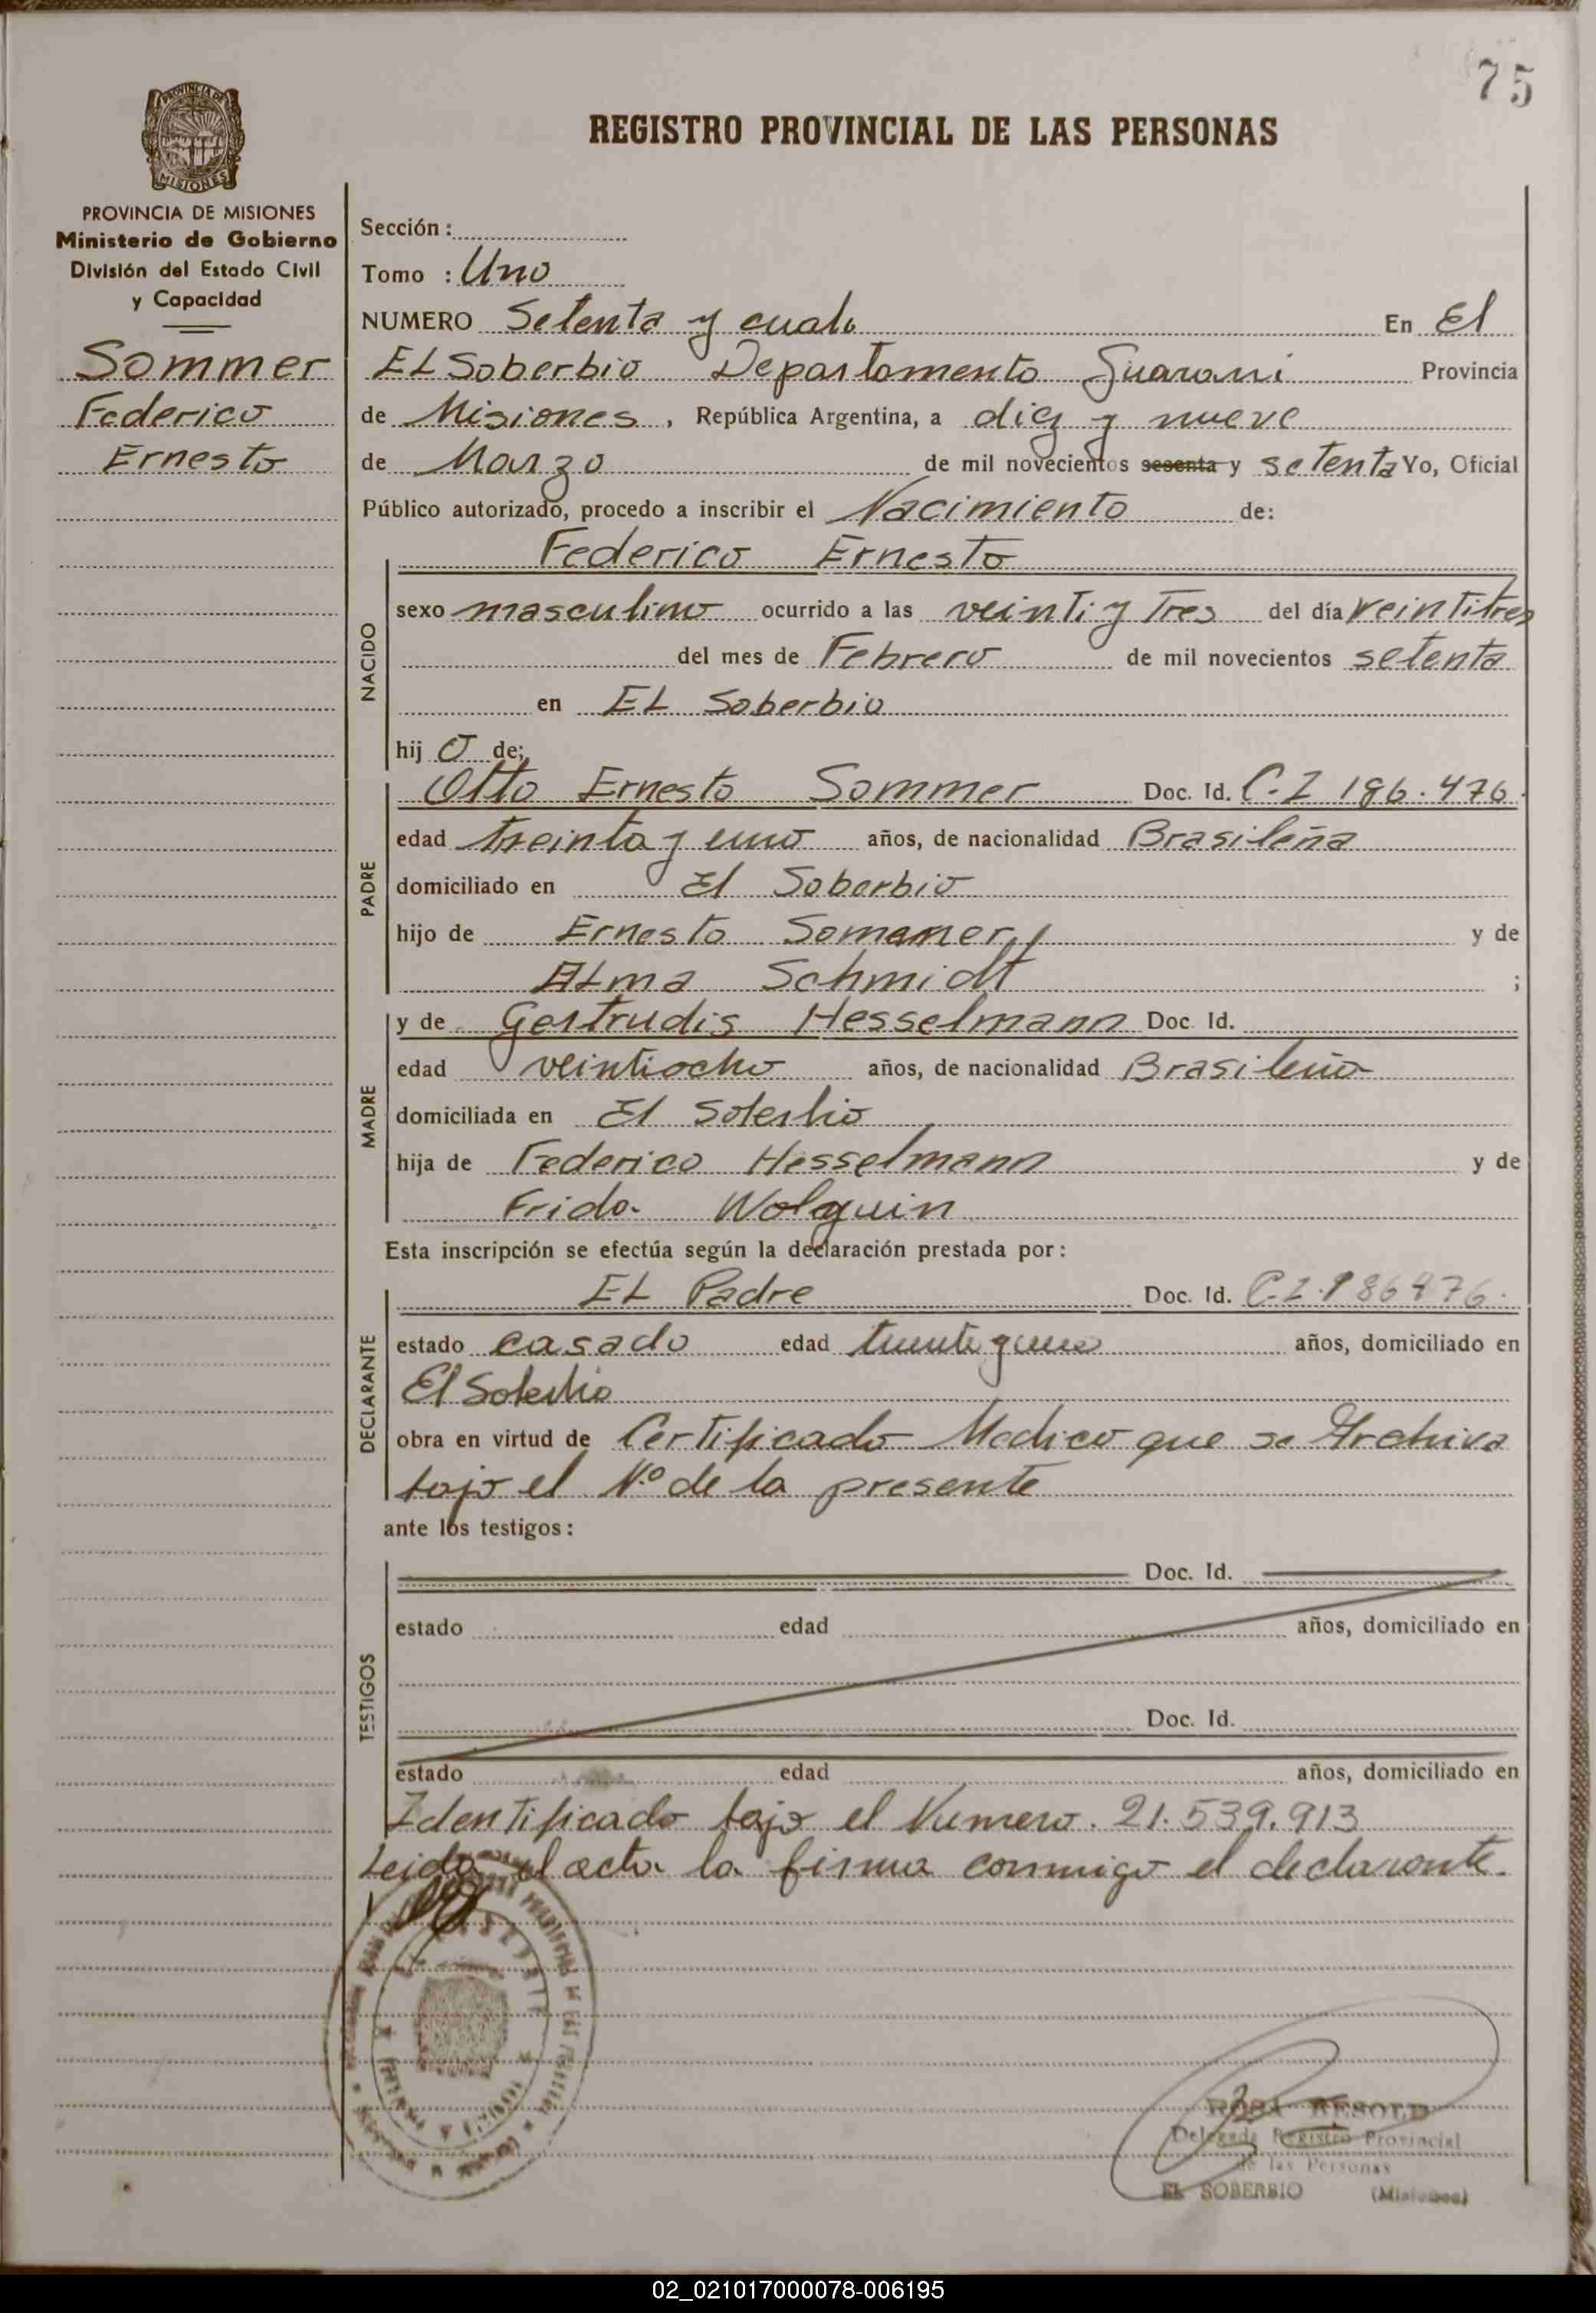 75
REGISTRO PROVINCIAL DE LAS PERSONAS
PROVINCIA DE
MISIONES
PROVINCIA DE MISIONES
Ministerio de Gobierno
División del Estado Civil
y Capacidad
Sommer
Federico
Ernesto
Sección :
Tomo : Uno
NUMERO Setenta y cuato En El
EL Soberbio Departamento Guarani Provincia
de Misiones , República Argentina, a diez y nueve
de Marzo de mil novecientos sesenta y setenta Yo, Oficial
Público autorizado, procedo a inscribir el Nacimiento de:
Federico Ernesto
NACIDO
sexo masculino ocurrido a las veinti y Tres del día veintitres
del mes de Febrero de mil novecientos setenta
en EL Soberbio
hij o de;
PADRE
Otto Ernesto Sommer Doc. Id. C.I 186.476.
edad treinta y uno años, de nacionalidad Brasileña
domiciliado en El Soberbio
hijo de Ernesto Somemer y de
Alma Schmidt ;
MADRE
y de Gertrudis Hesselmann Doc. Id.
edad veintiocho años, de nacionalidad Brasileña
domiciliada en El Soberbio
hija de Federico Hesselmann y de
Frida Wolguin
Esta inscripción se efectúa según la declaración prestada por :
DECLARANTE
EL Padre Doc. Id. C.I.186476.
estado casado edad treinta y uno años, domiciliado en
El Soberbio
obra en virtud de Certificado Medico que se Archiva
bajo el N.º de la presente
ante los testigos :
TESTIGOS
Doc. Id.
estado edad años, domiciliado en
Doc. Id.
estado edad años, domiciliado en
Identificado bajo el Numero. 21.539.913
Leida el acta la firma conmigo el declarante.
ROSA BESOLD
Delegada Registro Provincial
de las Personas
EL SOBERBIO (Misiones)
02_021017000078-006195